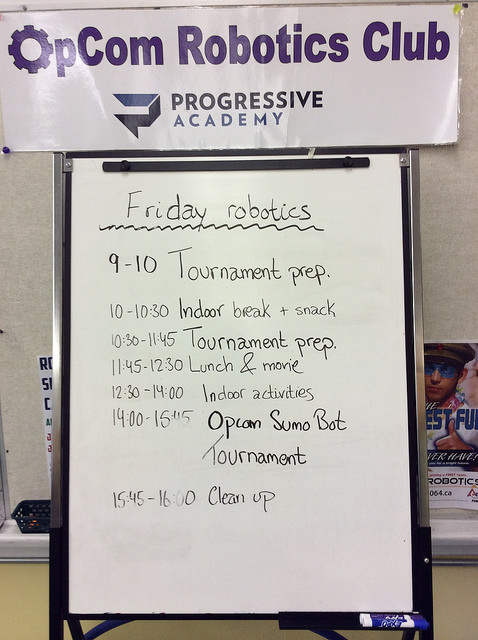 OpCom Robotics Club
PROGRESSIVE
ACADEMY
Friday robotics
9-10 Tournament prep.
10-10:30 Indoor break + snack
10:30-11:45 Tournament prep.
11:45-12:30 Lunch & movie
12:30-14:00 Indoor activities
14:00-15:45 Opcom Sumo Bot
Tournament
15:45-16:00 Clean up
EST FU
VER HAVE!
ROBOTICS
064.ca